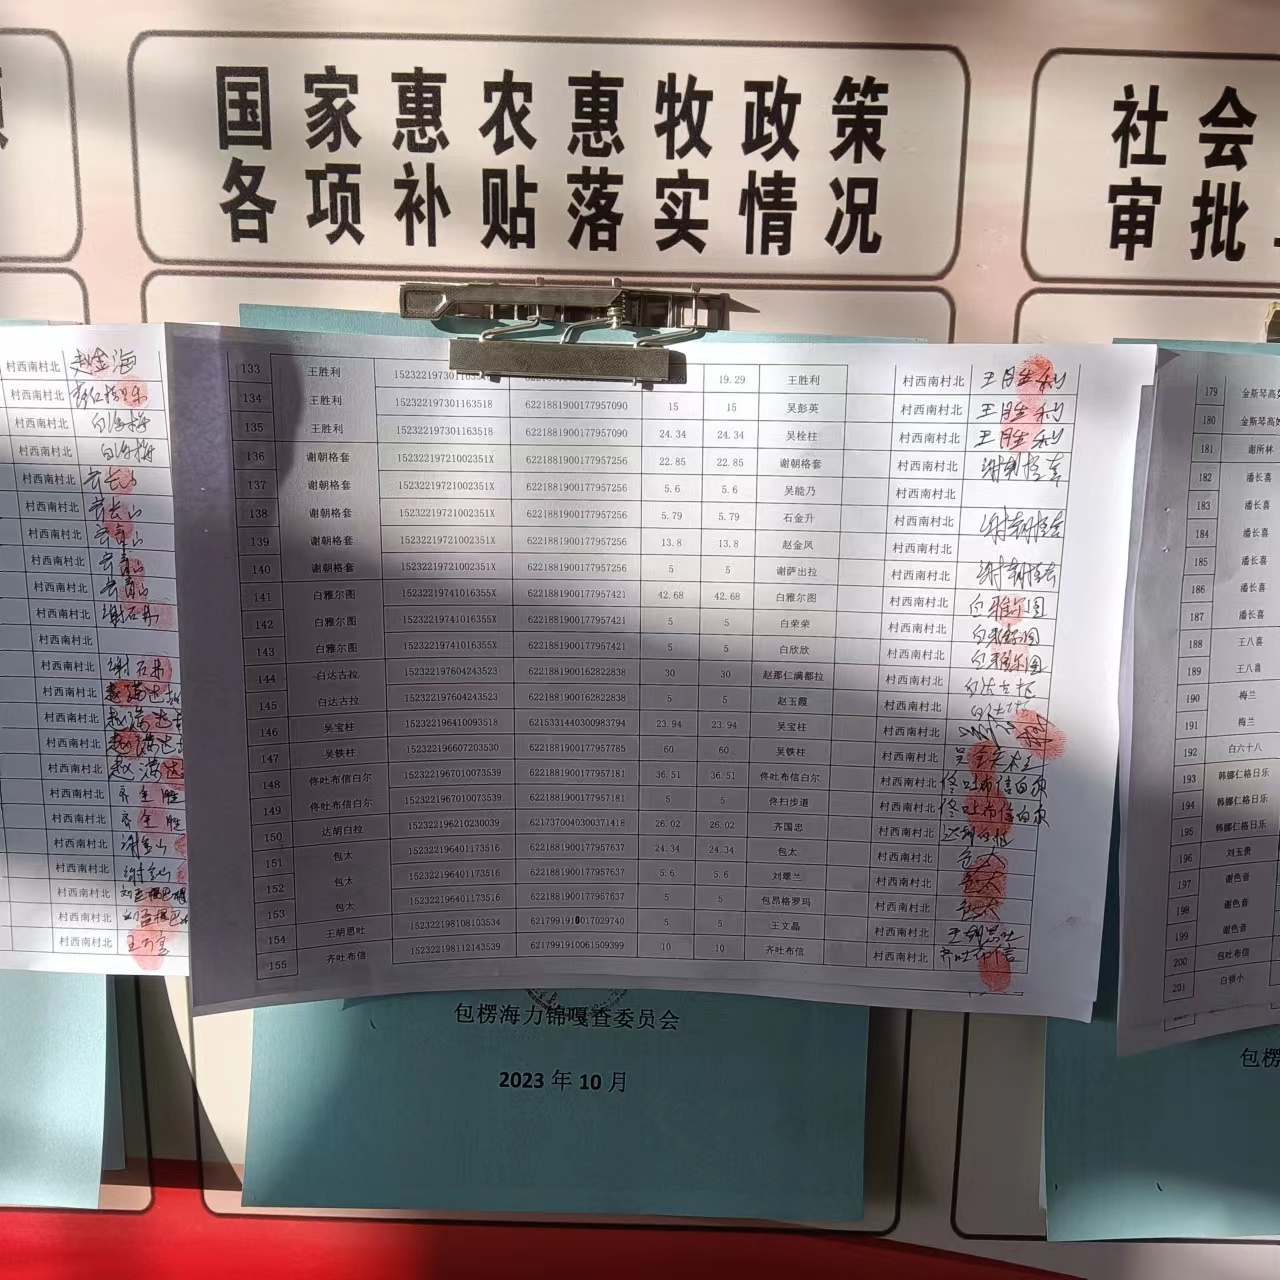 国家惠农惠牧政策
各项补贴落实情况
社会
审批
村西南村北 赵金海
村西南村北
村西南村北 白海梅
村西南村北 白海梅
村西南村北
村西南村北
村西南村北
村西南村北
村西南村北
村西南村北 谢石丹
村西南村北
村西南村北 谢石丹
村西南村北
村西南村北
村西南村北
村西南村北
村西南村北 齐全胜
村西南村北 齐全胜
村西南村北 谢金山
村西南村北 谢金山
村西南村北
村西南村北
村西南村北
133 王胜利 19.29 王胜利 村西南村北 王胜利
134 王胜利 152322197301163518 6221881900177957090 15 15 吴彭英 村西南村北 王胜利
135 王胜利 152322197301163518 6221881900177957090 24.34 24.34 吴栓柱 村西南村北 王胜利
136 谢朝格套 15232219721002351X 6221881900177957256 22.85 22.85 谢朝格套 村西南村北 谢朝格套
137 谢朝格套 15232219721002351X 6221881900177957256 5.6 5.6 吴能乃 村西南村北
138 谢朝格套 15232219721002351X 6221881900177957256 5.79 5.79 石金升 村西南村北 谢朝格套
139 谢朝格套 15232219721002351X 6221881900177957256 13.8 13.8 赵金凤 村西南村北
140 谢朝格套 15232219721002351X 6221881900177957256 5 5 谢萨出拉 村西南村北 谢朝格套
141 白雅尔图 15232219741016355X 6221881900177957421 42.68 42.68 白雅尔图 村西南村北 白雅尔图
142 白雅尔图 15232219741016355X 6221881900177957421 5 5 白荣荣 村西南村北 白雅尔图
143 白雅尔图 15232219741016355X 6221881900177957421 5 5 白欣欣 村西南村北 白雅尔图
144 白达古拉 152322197604243523 6221881900162822838 30 30 赵那仁满都拉 村西南村北 白达古拉
145 白达古拉 152322197604243523 6221881900162822838 5 5 赵玉霞 村西南村北 白达古拉
146 吴宝柱 152322196410093518 6215331440300983794 23.94 23.94 吴宝柱 村西南村北
147 吴铁柱 152322196607203530 6221881900177957785 60 60 吴铁柱 村西南村北
148 佟吐布信白尔 1523221967010073539 6221881900177957181 36.51 36.51 佟吐布信白尔 村西南村北 佟吐布信白尔
149 佟吐布信白尔 1523221967010073539 6221881900177957181 5 5 佟扫步道 村西南村北 佟吐布信白尔
150 达胡白拉 152322196210230039 6217370040300371418 26.02 26.02 齐国忠 村西南村北 达胡白拉
151 包太 152322196401173516 6221881900177957637 24.34 24.34 包太 村西南村北 包太
152 包太 152322196401173516 6221881900177957637 5.6 5.6 刘翠兰 村西南村北 包太
153 包太 152322196401173516 6221881900177957637 5 5 包昂格罗玛 村西南村北 包太
154 王胡思吐 152322198108103534 6217991910017029740 5 5 王文晶 村西南村北 王胡思吐
155 齐吐布信 152322198112143539 6217991910061509399 10 10 齐吐布信 村西南村北 齐吐布信
179 金斯琴高
180 金斯琴高
181 谢所林
182 潘长喜
183 潘长喜
184 潘长喜
185 潘长喜
186 潘长喜
187 潘长喜
188 王八喜
189 王八喜
190 梅兰
191 梅兰
192 白六十八
193 韩娜仁格日乐
194 韩娜仁格日乐
195 韩娜仁格日乐
196 刘玉贵
197 谢色音
198 谢色音
199 谢色音
200 包吐布信
201 白领小
包楞海力锦嘎查委员会
2023 年 10 月
包楞